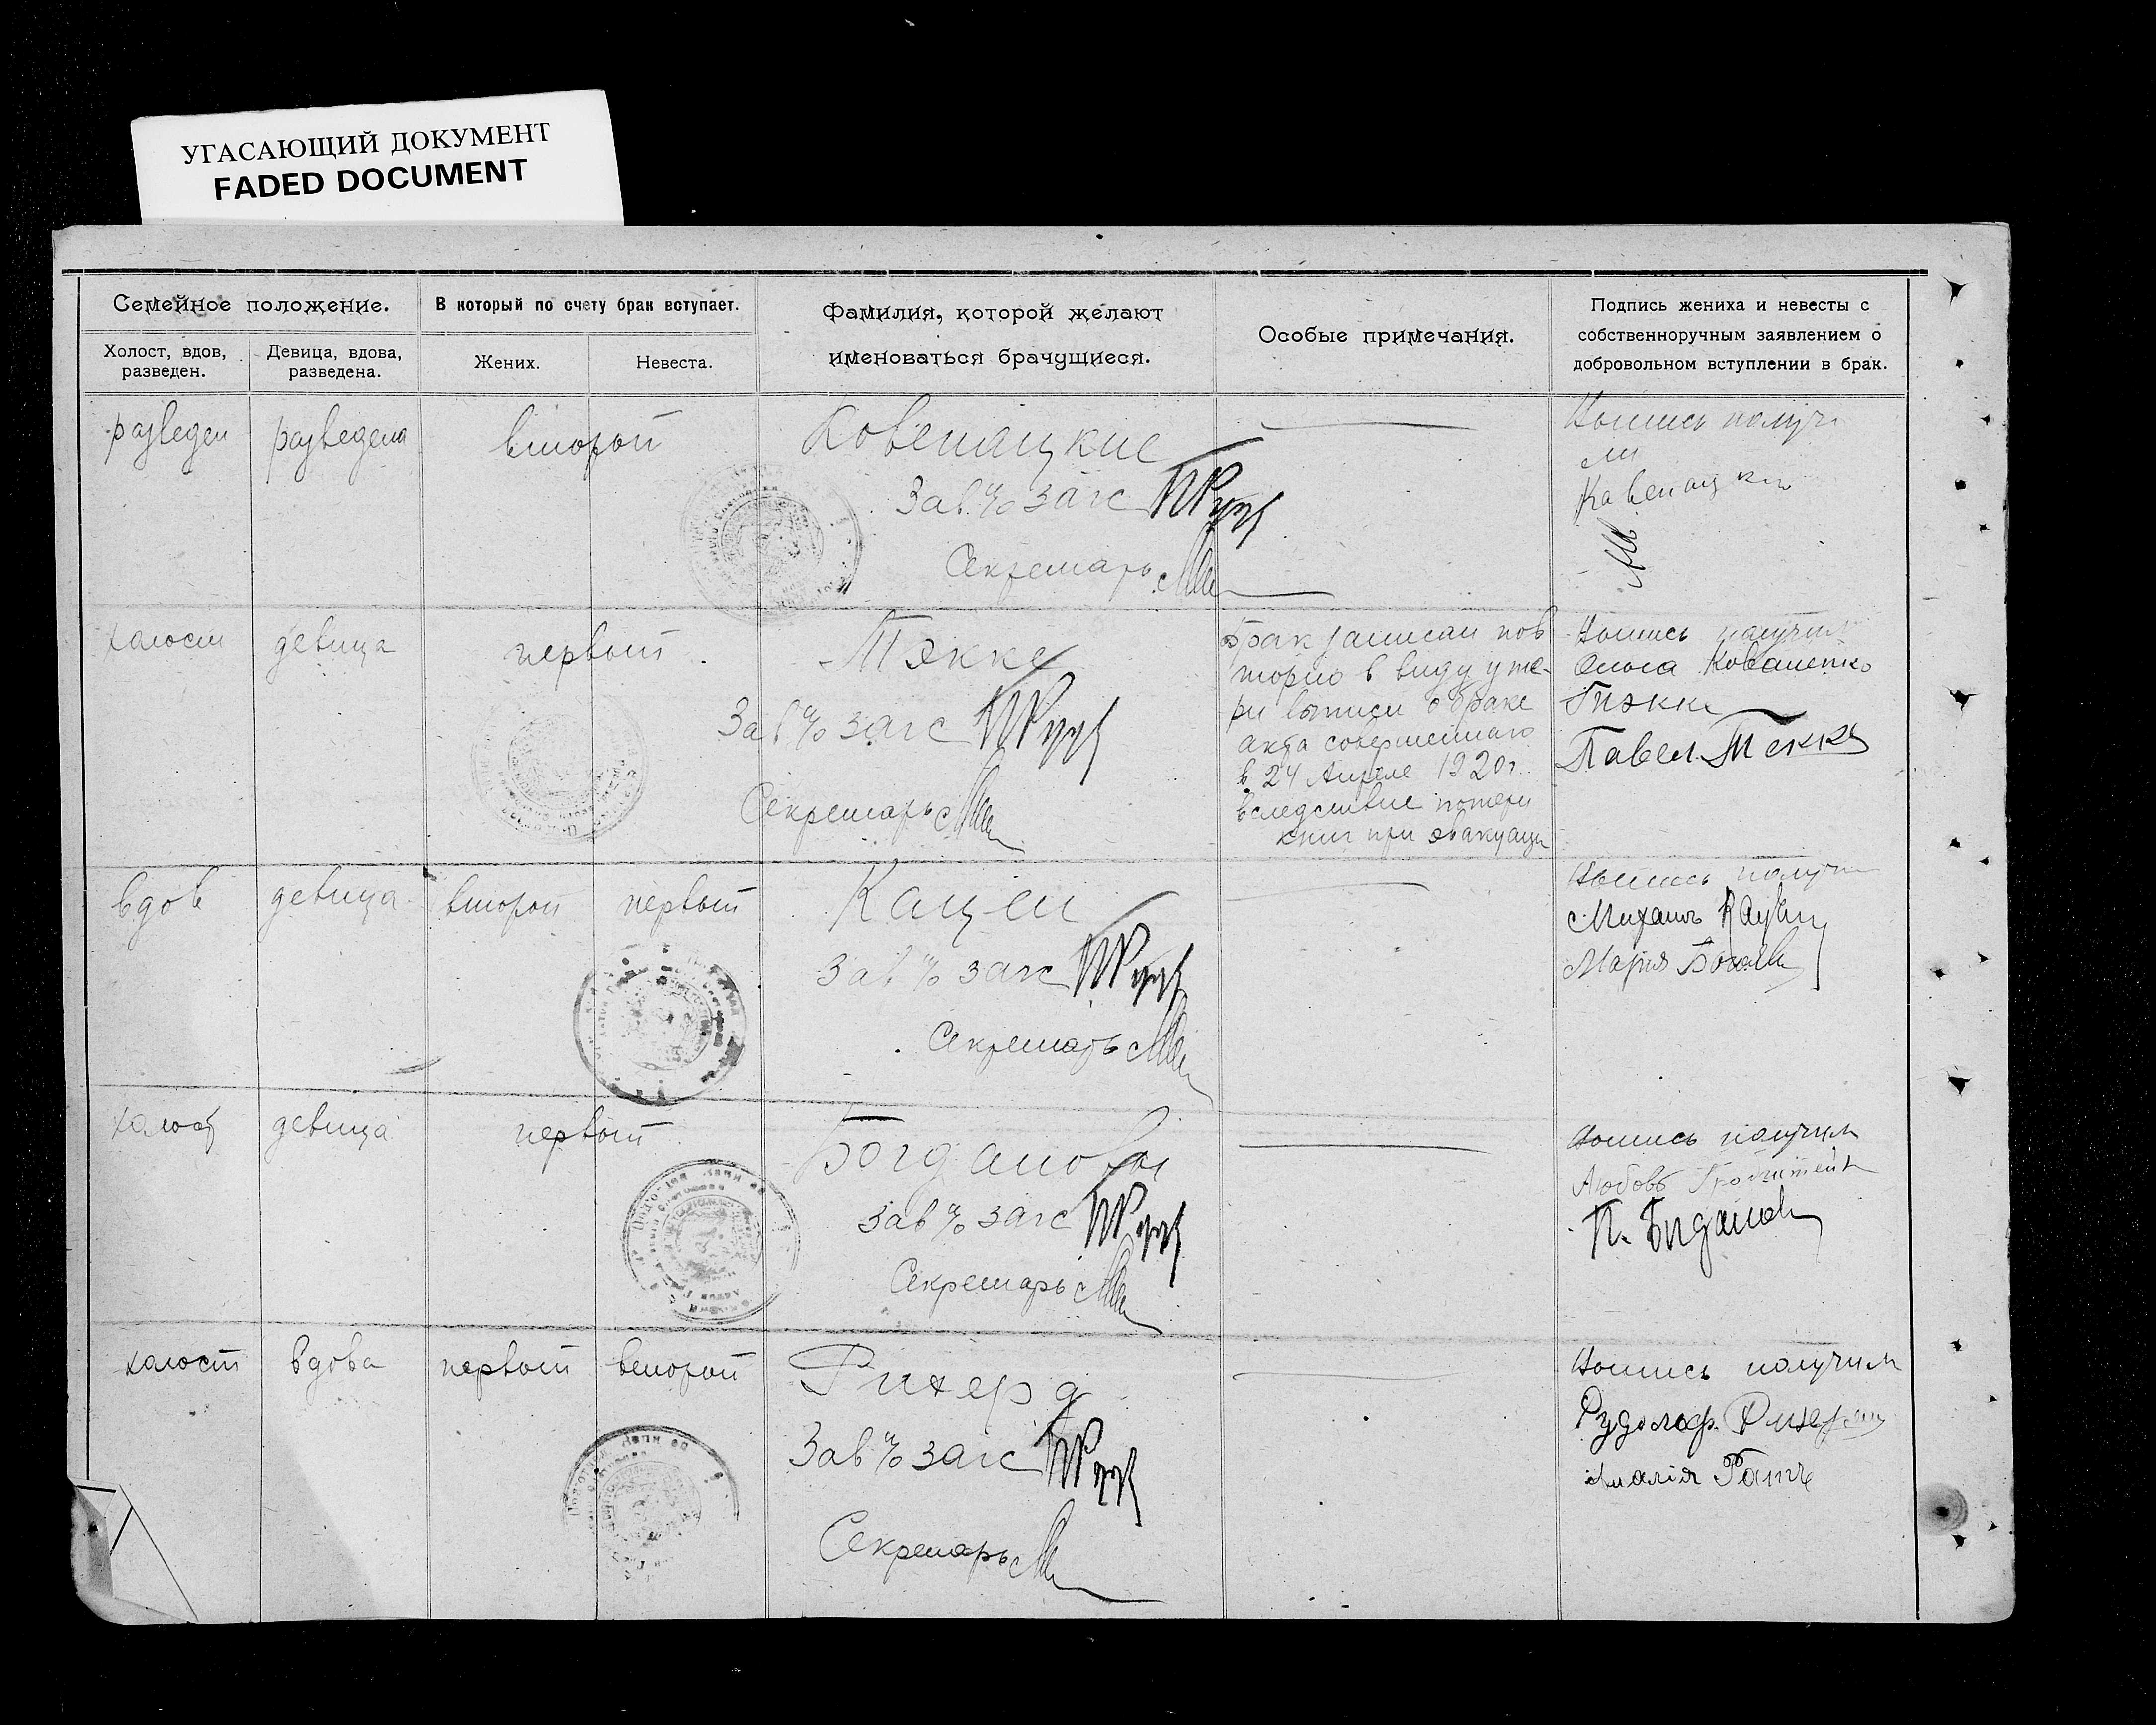 УГАСАЮЩИЙ ДОКУМЕНТ
FADED DOCUMENT
Семейное положение.
Холост, вдов, разведен.
Девица, вдова, разведена.
В который по счету брак вступает.
Жених.
Невеста.
Фамилия, которой желают
именоваться брачущиеся.
Особые примечания.
Подпись жениха и невесты с
собственноручным заявлением о
добровольном вступлении в брак.
разведен разведена второй
Зав. п/о загс
Секретарь
Выпись получи
ли
холост девица первый Тэкке
Зав п/о загс
Секретарь
Брак записан пов
торно в виду уте-
ри выписи о браке
акта совершеннаго
в 24 Апреле 1920 г.
вследствие потери
книг при эвакуаци
Выпись получили
Ольга Коваленко
Тэкке
Павел Текке
вдов девица второй первый Кацен
Зав п/о загс
Секретарь
Выпись получили
Михаил Кацен
Мария
холост девица первый Богдановы
Зав п/о загс
Секретарь
Выпись получили
Любовь
П. Богданов
холост вдова первый второй Рихерд
Зав п/о загс
Секретарь
Выпись получили
Рудольф Рихерд
Амалія